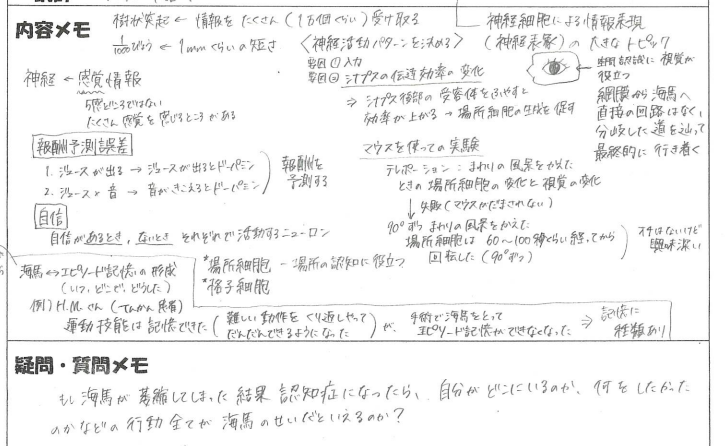 内容メモ
樹状突起 ← 情報をたくさん(1万個くらい)受け取る
1/1000びょう ← 1mmくらいの短さ
神経 ← 感覚情報
5感どころではない
たくさん感覚を感じるところがある
報酬予測誤差
1. ジュースが出る → ジュースが出るとドーパミン
2. ジュース×音 → 音がきこえるとドーパミン
報酬を
予測する
自信
自信があるとき,ないとき それぞれで活動するニューロン
海馬 ↔ エピソード記憶の形成
(いつ,どこで,どうした)
*場所細胞 - 場所の認知に役立つ
*格子細胞
例) H.M.さん(てんかん患者)
運動技能は記憶できた(難しい動作をくり返しやって
だんだんできるようになった)が、
手術で海馬をとって
エピソード記憶ができなくなった ⇒ 記憶に
種類あり
〈神経活動パターンを決める〉
要因① 入力
要因② シナプスの伝達効率の変化
⇒ シナプス後部の受容体をふやすと
効率が上がる → 場所細胞の生成を促す
マウスを使っての実験
テレポーション : まわりの風景をかえた
ときの場所細胞の変化と視覚の変化
↓ 失敗(マウスがだまされない)
90°ずつまわりの風景をかえた
場所細胞は 60~100秒くらい経ってから
回転した(90°ずつ)
オチはないけど
興味深い
神経細胞による情報表現
(神経表象)の大きなトピック
← 空間認識に視覚が
役立つ
網膜から海馬へ
直接の回路はなく、
分岐した道を辿って
最終的に行き着く
疑問・質問メモ
もし海馬が萎縮してしまった結果認知症になったら、自分がどこにいるのか、何をしたかった
のかなどの行動全てが海馬のせいだといえるのか?